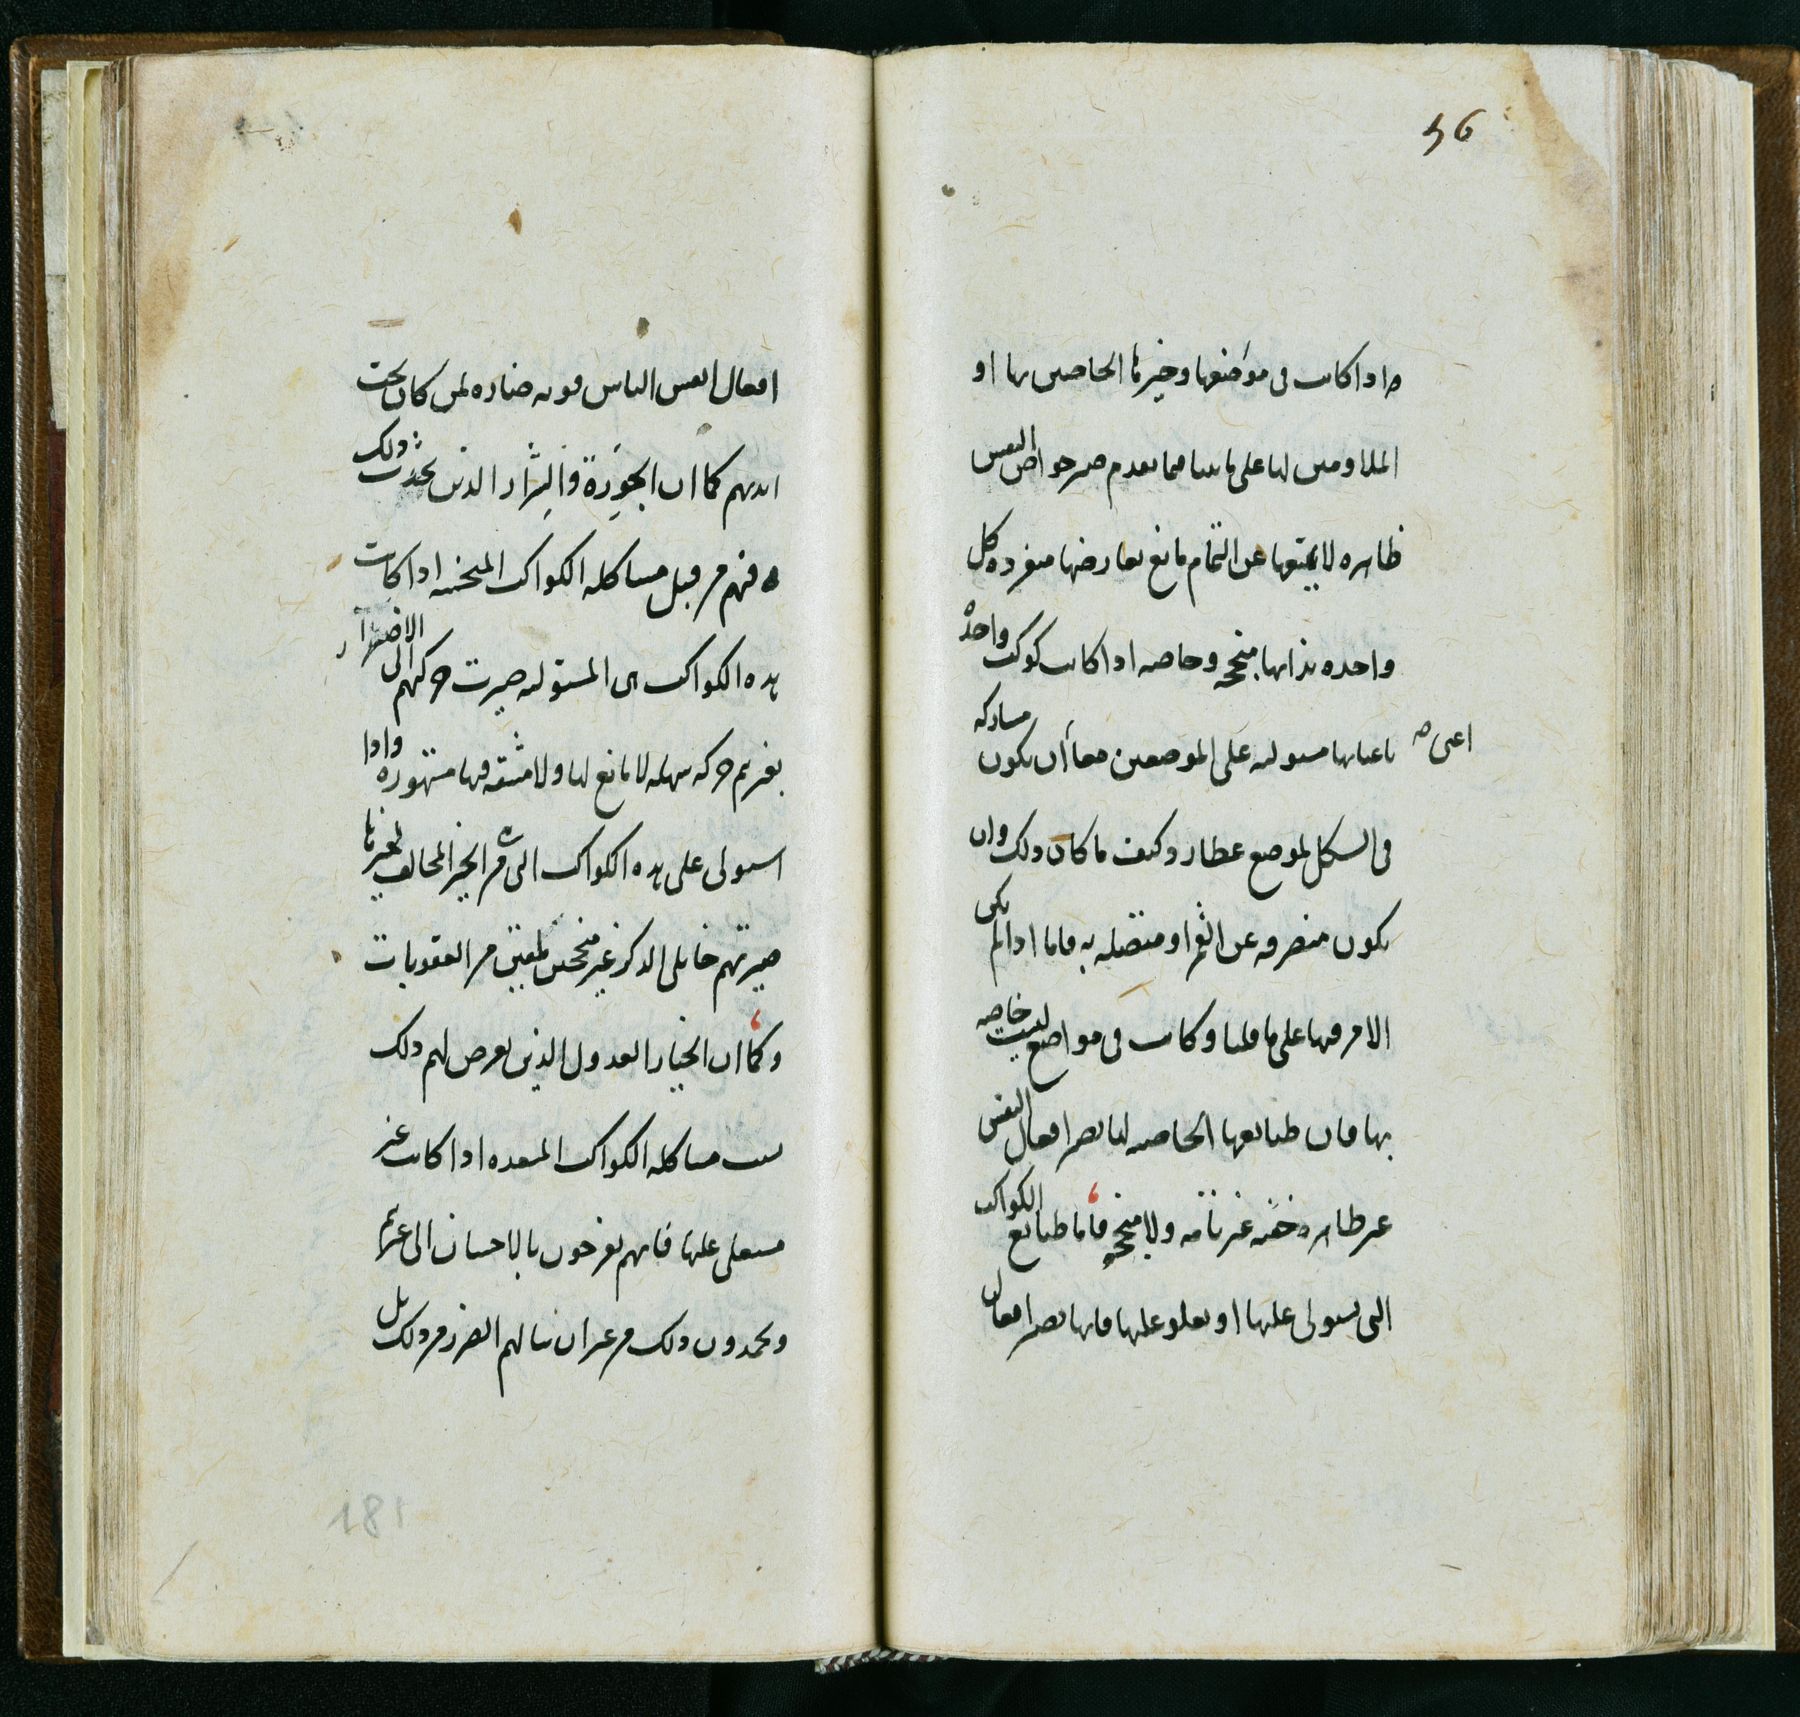 56
واذا كانت فى مواضعها وحيزها الخاصين بها او
الملاومين لها على ما بينا مما تقدم من خواص النفس
ظاهره لا يمنعها عن التمام مانع يعارضها منفرده كل
واحده بذاتها منجحه وخاصه اذا كانت كوكب واحد
باعيانها مستوليه على الموضعين معا اعنى ان يكون مشاركه
فى الشكل لموضع عطارد وكيف ما كان ذلك وان
يكون منصرفه عن القمر او متصله به فاما اذا لم يكن
الامر فيها على ما قلنا وكانت فى مواضع ليست خاصه
بها فان طبائعها الخاصه لها تصير افعال النفس
غير ظاهره خفيه غير تامه ولا منجحه فاما طبائع الكواكب
التى تستولى عليها او تعلو عليها فانها تصير افعال
افعال انفس الناس قويه ضاره لمن كان تحت
ايديهم كما ان الجورة والشرار الذين يحدث ذلك
فيهم من قبل مشاكله الكواكب المنحسه اذا كانت
هذه الكواكب هى المستوليه صيرت حركتهم الى الاضرار
بغيرهم حركه سهله لا مانع لها ولا مشقه فيها متهوره واذا
استولى على هذه الكواكب التى من الحيز المخالف لحيزها
صيرتهم خاملى الذكر غير منجحين ملقين من العقوبات
وكما ان الخيار العدول الذين يعرض لهم ذلك
بسبب مشاكله الكواكب المسعده اذا كانت غير
مستعلى عليها فانهم يفرحون بالاحسان الى غيرهم
ويحمدون ذلك من غير ان ينالهم الضرر من ذلك بل
181